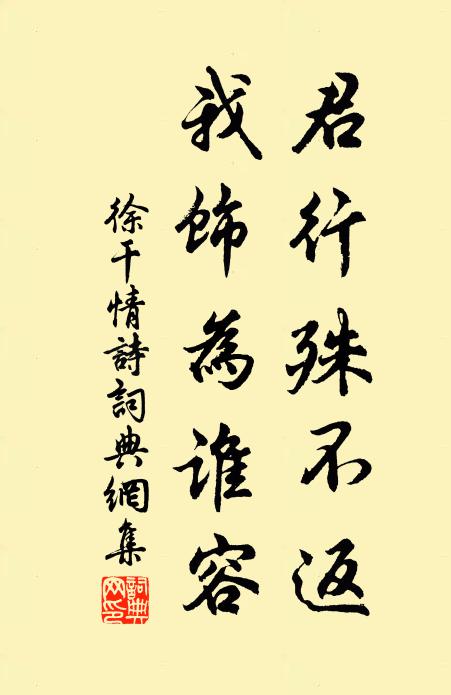 君行殊不返
我飾為誰容
徐干情詩詞典網集